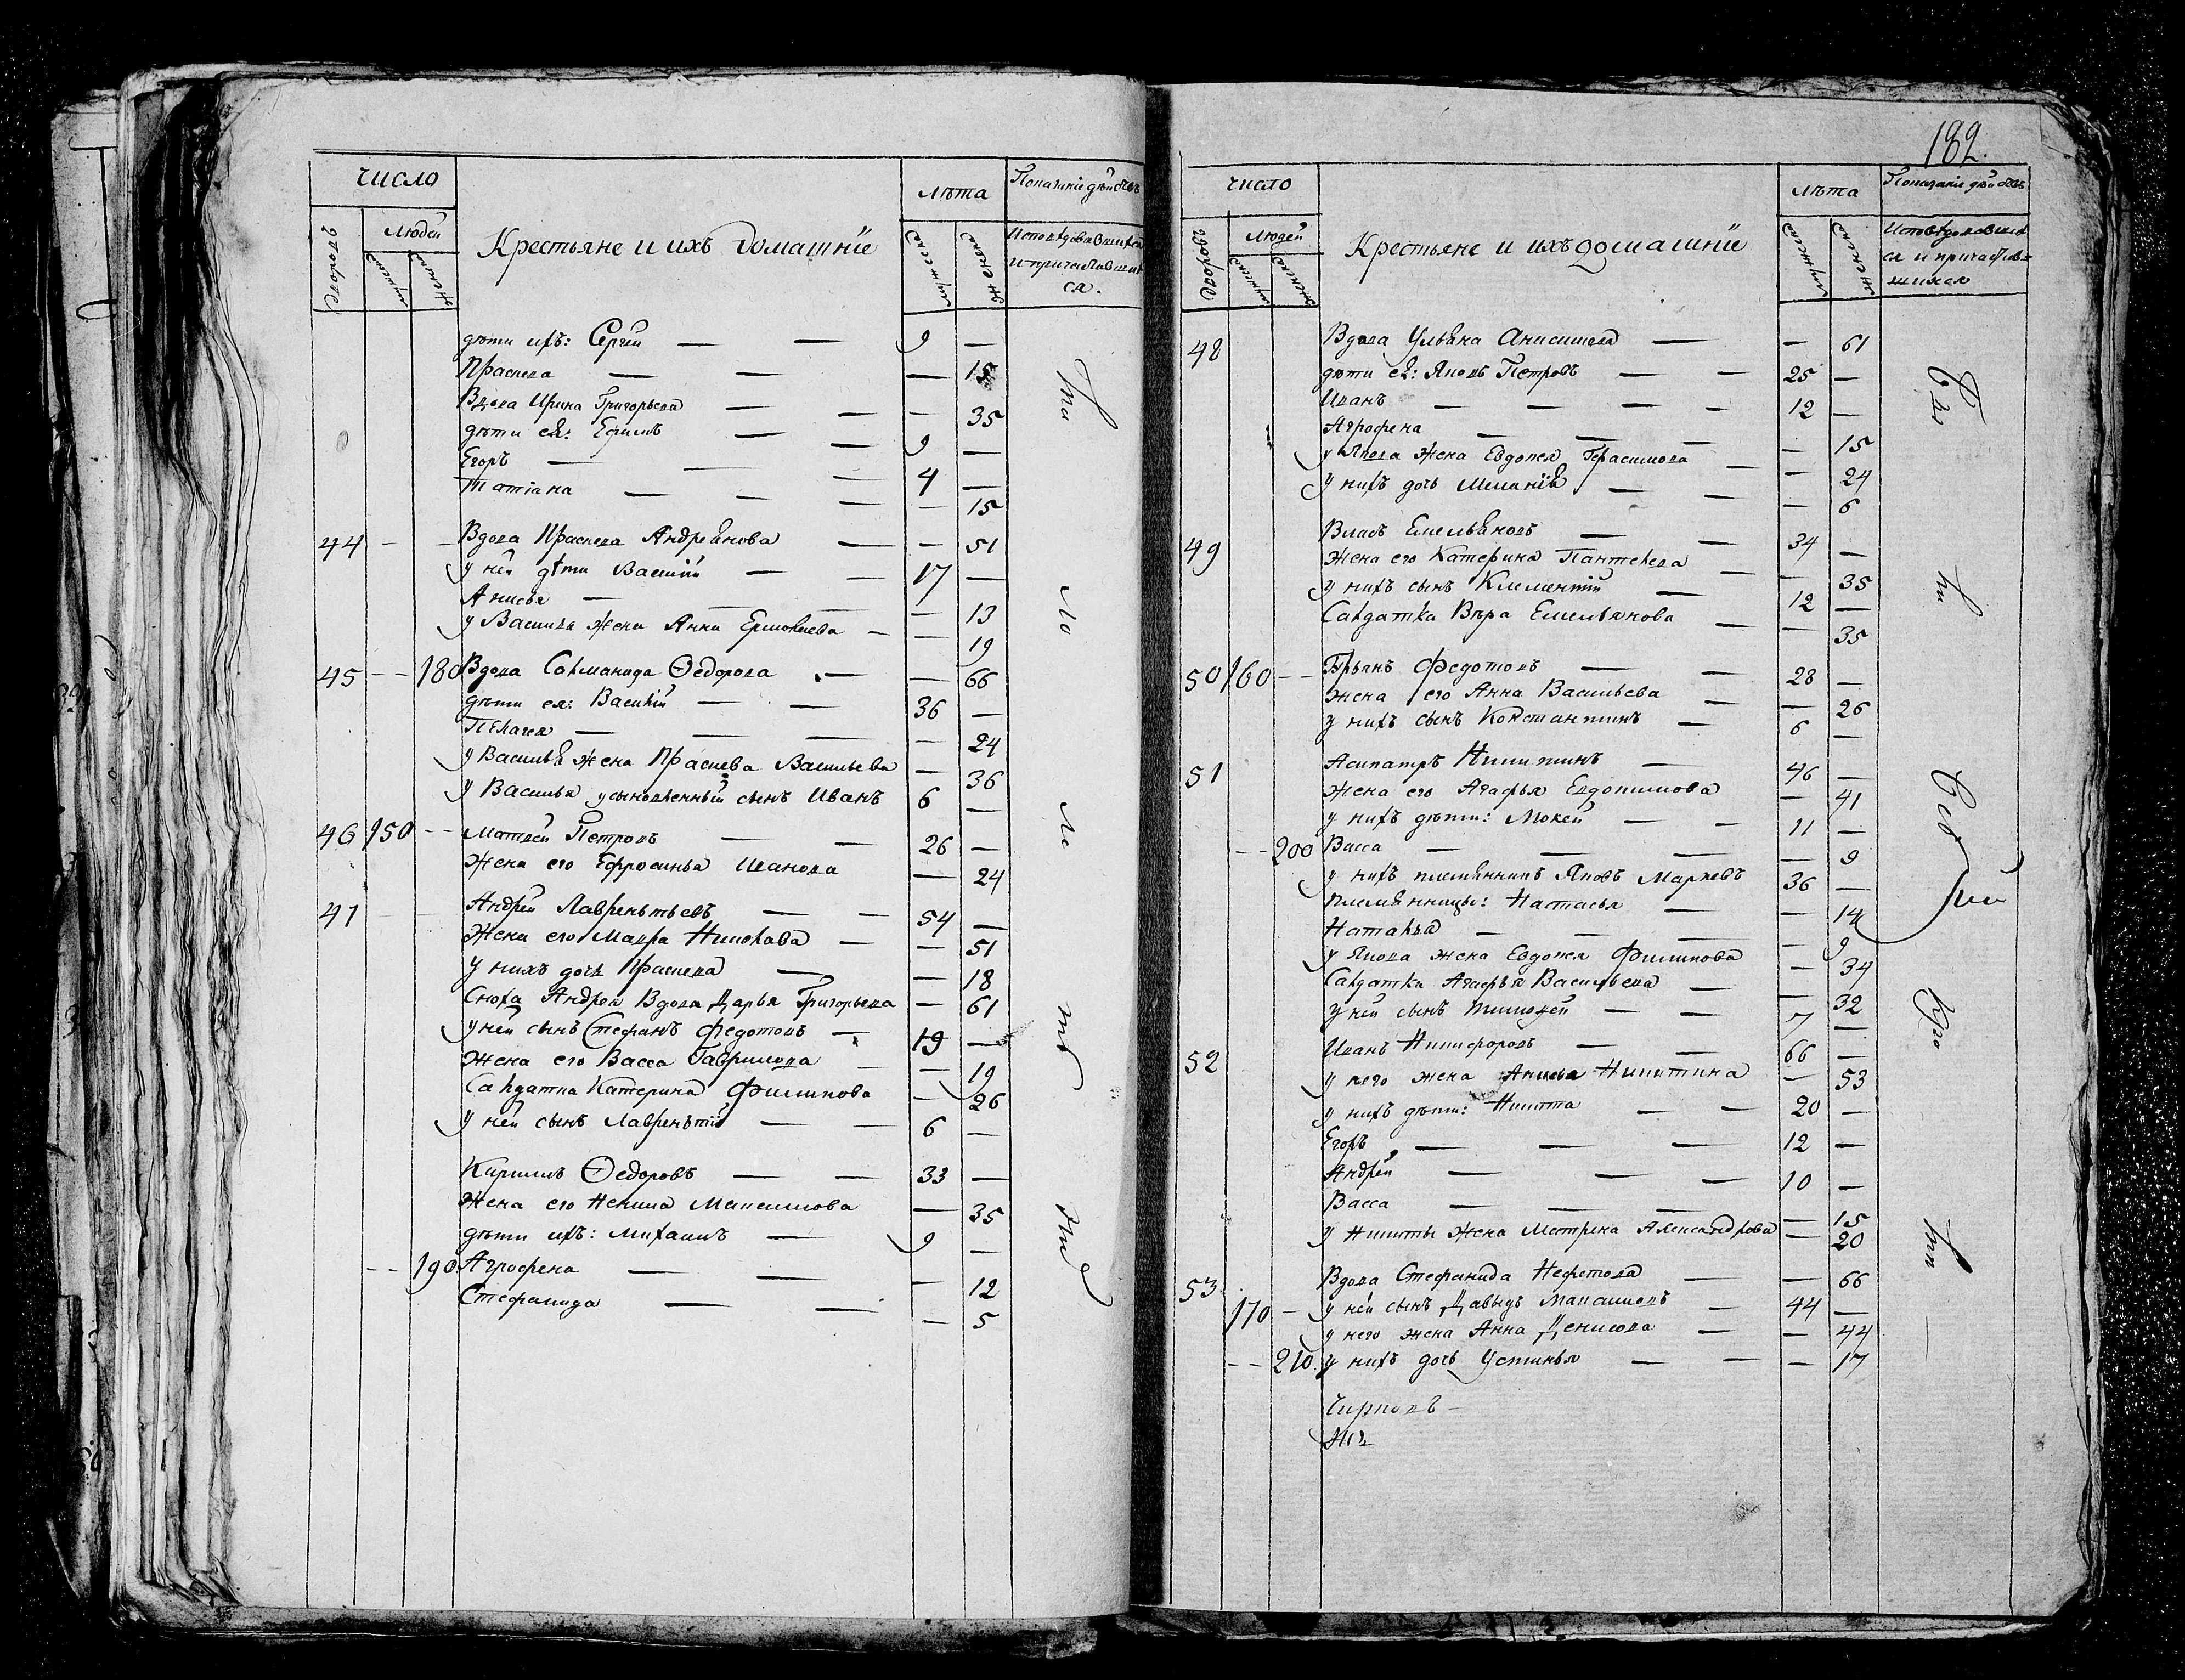 число
лѣта
Показаніе дѣйствъ
дворовъ
людей
мужеска
женска
Крестьяне и ихъ домашніе
мужеска
женска
Исповѣдовавшихся
и причастившихся.
дѣти ихъ: Сергей — — 9 —
Прасκева — — — 15
Вдова Ирина Григорьева — — — 35
дѣти ея: Ефимъ — — 9 —
Егоръ — — — 4 —
Татіана — — — — 15
44 - - Вдова Праскева Андреянова — — 51
у ней дѣти Василій — — 17 —
Анисья — — — — 13
у Василья жена Анна Ермолаева — — 19
45 - - 180 Вдова Соломанида Ѳедорова — — 66
дѣти ея: Василій — — 36 —
Пелагея — — — — 24
у Василья жена Праскева Васильева — 36
у Василья усыновленный сынъ Иванъ 6 —
46 150 - - Матвей Петровъ — — 26 —
Жена его Ефросинья Иванова — 24
47 - - Андрей Лаврентьевъ — — 54 —
Жена его Мавра Николаева — — 51
У нихъ дочь Праскева — — 18
Сноха Андрея Вдова Дарья Григорьева — 61
у ней сынъ Стефанъ Федотовъ — 19 —
Жена его Васса Гаврилова — — 19
Салдатка Катерина Филипова — 26
у ней сынъ Лаврентій — — 6 —
Кирилъ Ѳедоровъ — — 33 —
Жена его Ксенія Максимова — 35
дѣти ихъ: Михаилъ — 9 —
- - 190 Агрофена — — — 12
Стефанида — — — 5
182.
число
лѣта
Показаніе дѣйствъ
дворовъ
людей
мужеска
женска
Крестьяне и ихъ домашніе
мужеска
женска
Исповѣдовавших
ся и причастив=
шихся
48 Вдова Ульяна Анисимова — — 61
дѣти ея: Яковъ Петровъ — — 25 —
Иванъ — — — — 12 —
Агрофена — — — — 15
у Якова жена Евдокея Герасимова — — 24
у нихъ дочь Меланія — — — 6
49 Власъ Емельяновъ — — 34 —
Жена его Катерина Пантелева — — 35
у нихъ сынъ Клементій — 12 —
Салдатка Вѣра Емельянова — — 35
50 160 - - Федотовъ — — 28 —
жена его Анна Васильева — — 26
у нихъ сынъ Константинъ — 6 —
51 Асипатръ Никитинъ — 46 —
жена его Агафья Евдокимова — 41
у нихъ дѣти: Мокей — — 11 —
- - 200 Васса — — — — 9
у нихъ племянникъ Яковъ Маркевъ 36 —
племянницы: Настасья — — 14
Наталья — — — — 9
у Якова жена Евдокея Филипова — 34
Салдатка Агафья Васильева — — 32
у ней сынъ Тимофей — — 7 —
52 Иванъ Никифоровъ — — 66 —
у него жена Анисья Никитина — 53
у нихъ дѣти: Никита — — 20 —
Егоръ — — — 12 —
Андрей — — — 10 —
Васса — — — — 15
у Никиты жена Матрена Александрова — 20
53 Вдова Стефанида Нефетова — — 66
170 - у ней сынъ Давыдъ — 44 —
у него жена Анна Денисова — — 44
- - 210. у нихъ дочь Устинья — — — 17